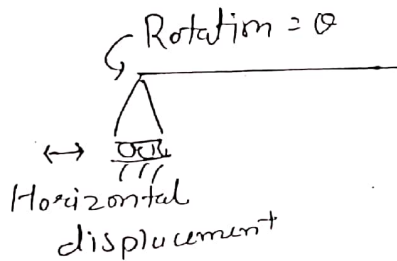 Rotation = θ
Horizontal
displacement